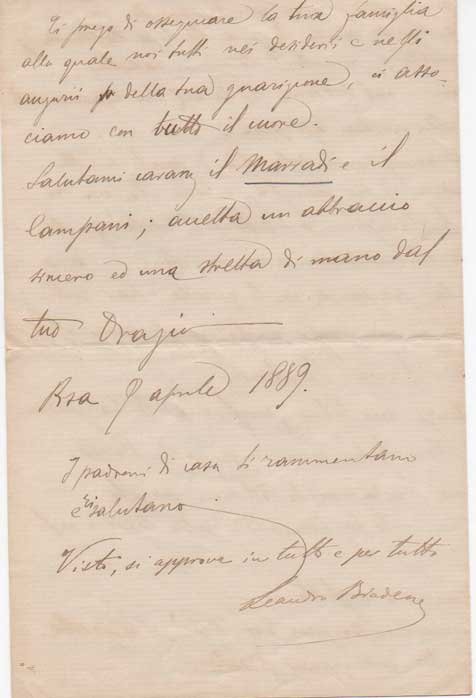 Ti prego di ossequiare la tua famiglia
alla quale noi tutti nei desideri e negli
augurii della tua guarigione, ci asso-
ciamo con tutto il cuore.
Salutami caram. il Marradi e il
Campani; accetta un abbraccio
sincero ed una stretta di mano dal
tuo Orazio
Pisa 9 aprile 1889.
I padroni di casa ti rammentano
e ti salutano
Visto, si approva in tutto e per tutto
Leandro Biadene